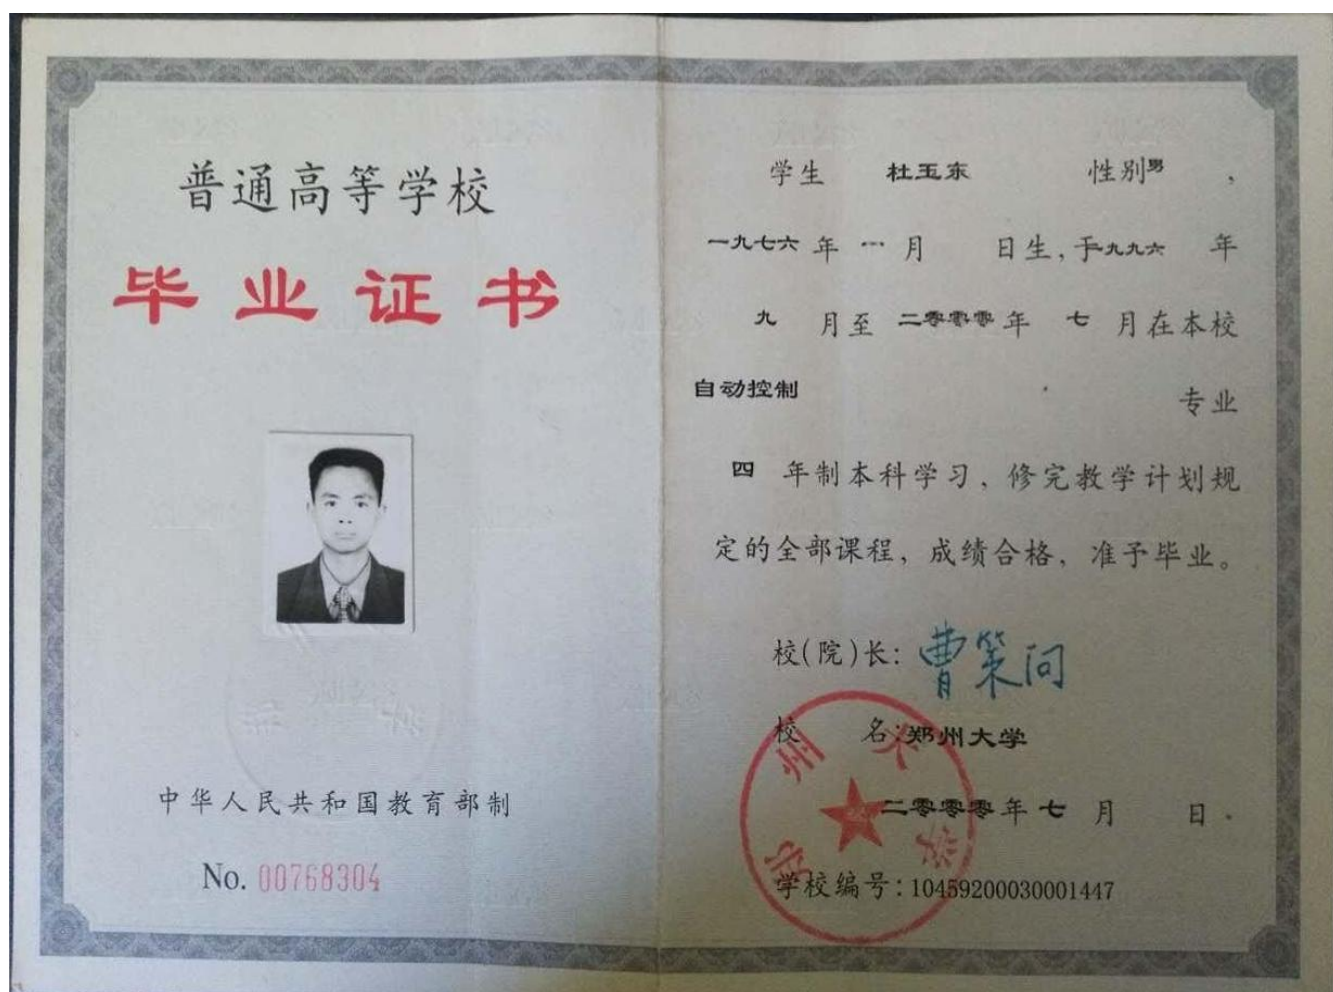 普通高等学校
毕业证书
中华人民共和国教育部制
No. 00768304
学生 杜玉东 性别 男 ，
一九七六 年 月 日生，于一九九六 年
九 月至 二零零零 年 七 月在本校
自动控制 专业
四 年制本科学习，修完教学计划规
定的全部课程，成绩合格，准予毕业。
校(院)长：曹策问
校 名：郑州大学
二零零零年 七 月 日
学校编号：10459200030001447
郑州大学